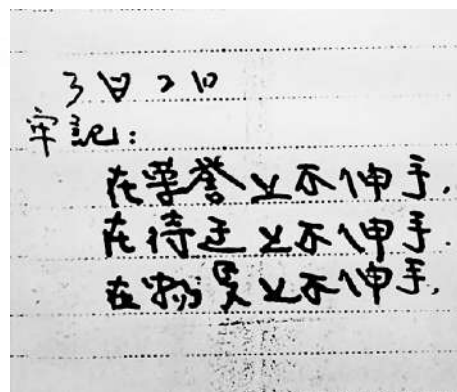 3
牢記：
在荣誉上不伸手.
在待遇上不伸手.
在物质上不伸手.